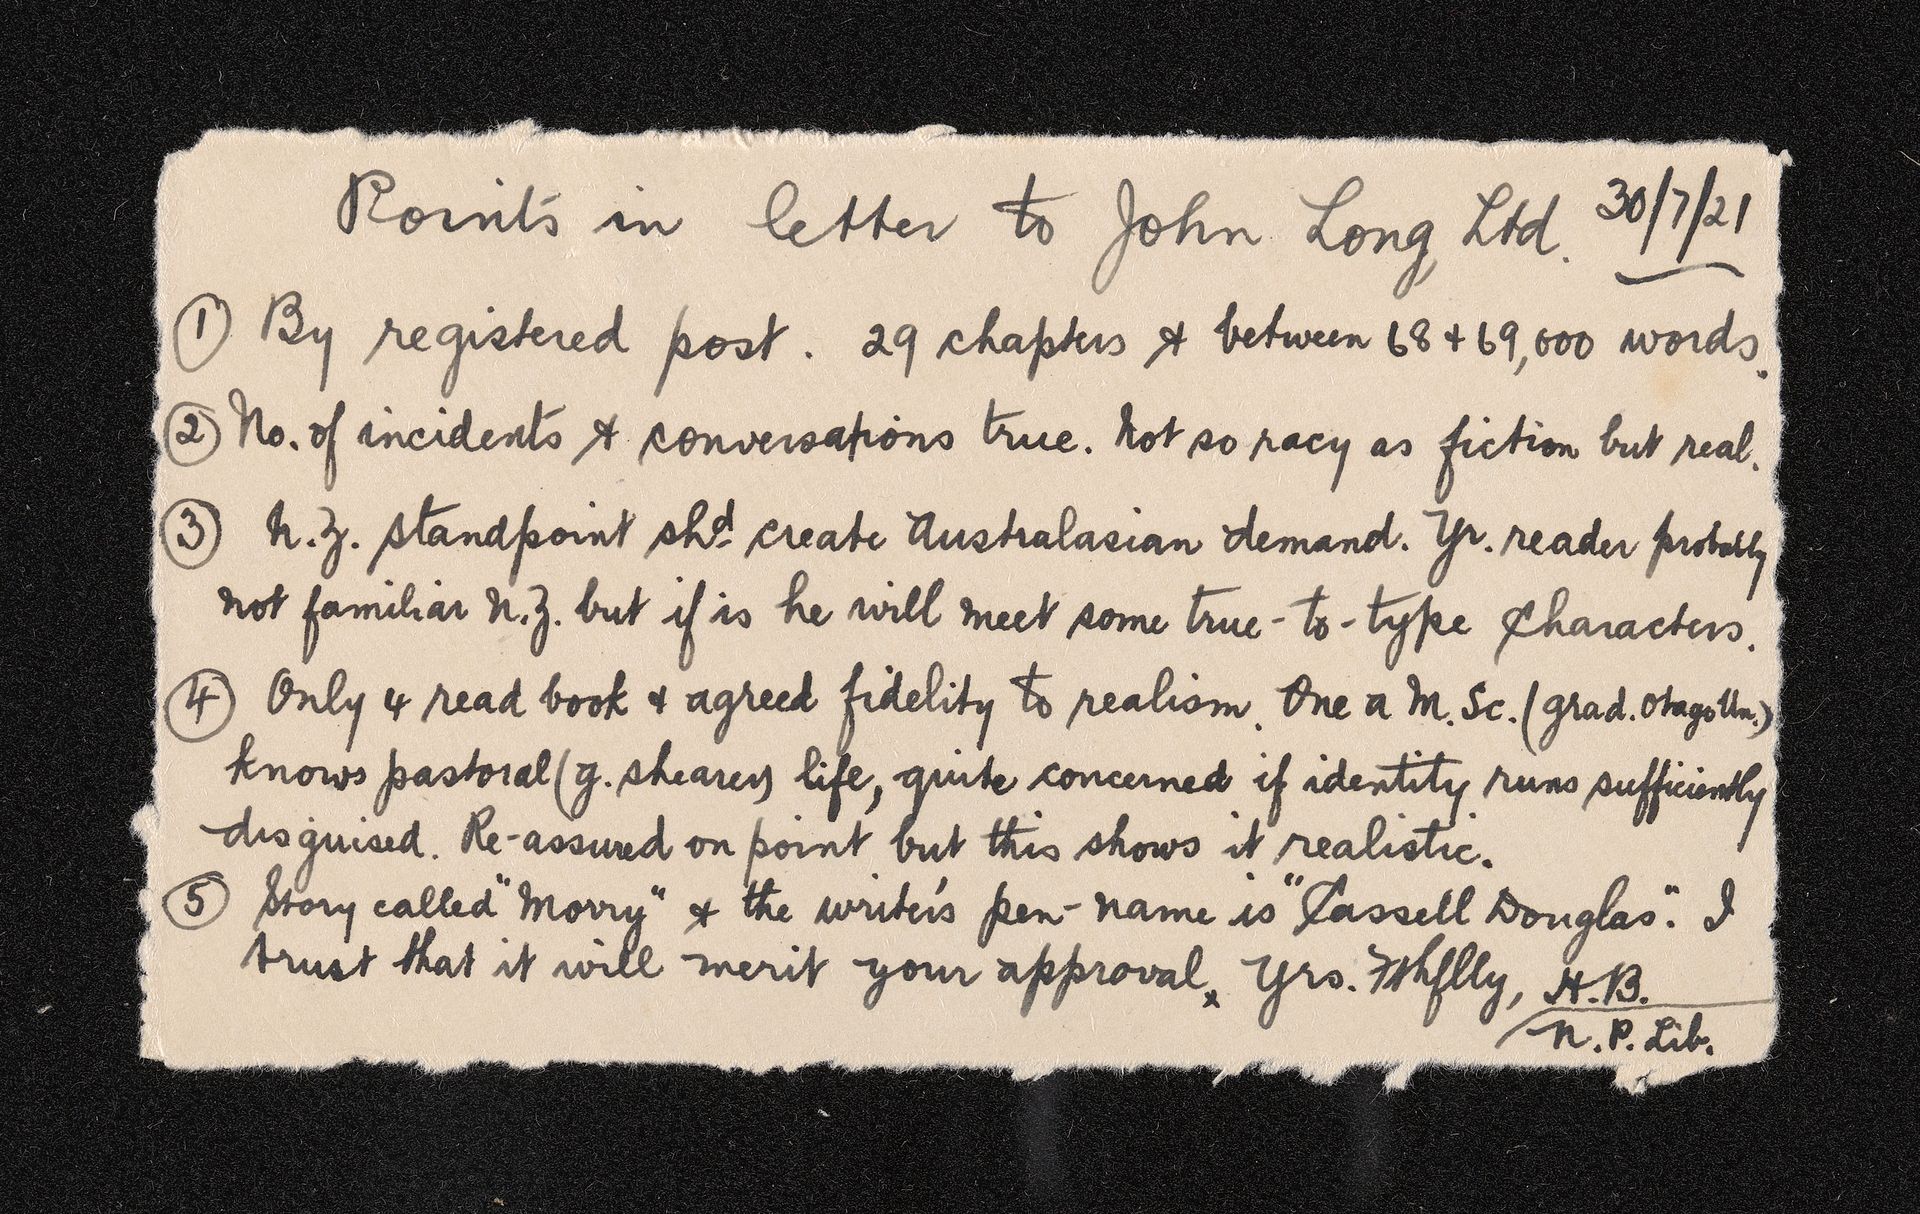 Points in letter to John Long, Ltd. 30/7/21
① By registered post. 29 chapters & between 68 + 69,000 words.
② No. of incidents & conversations true. Not so racy as fiction but real.
③ N.Z. standpoint shd. create Australasian demand. Yr. reader probably
not familiar N.Z. but if is he will meet some true-to-type Characters.
④ Only 4 read book & agreed fidelity to realism. One a M.Sc. (grad. Otago Un.)
knows pastoral (g. shearer) life, quite concerned if identity runs sufficiently
disguised. Re-assured on point but this shows it realistic.
⑤ Story called "Morry" & the writer's pen-name is "Cassell Douglas". I
trust that it will merit your approval. Yrs. Fthflly, H.B.
N.P. Lib.